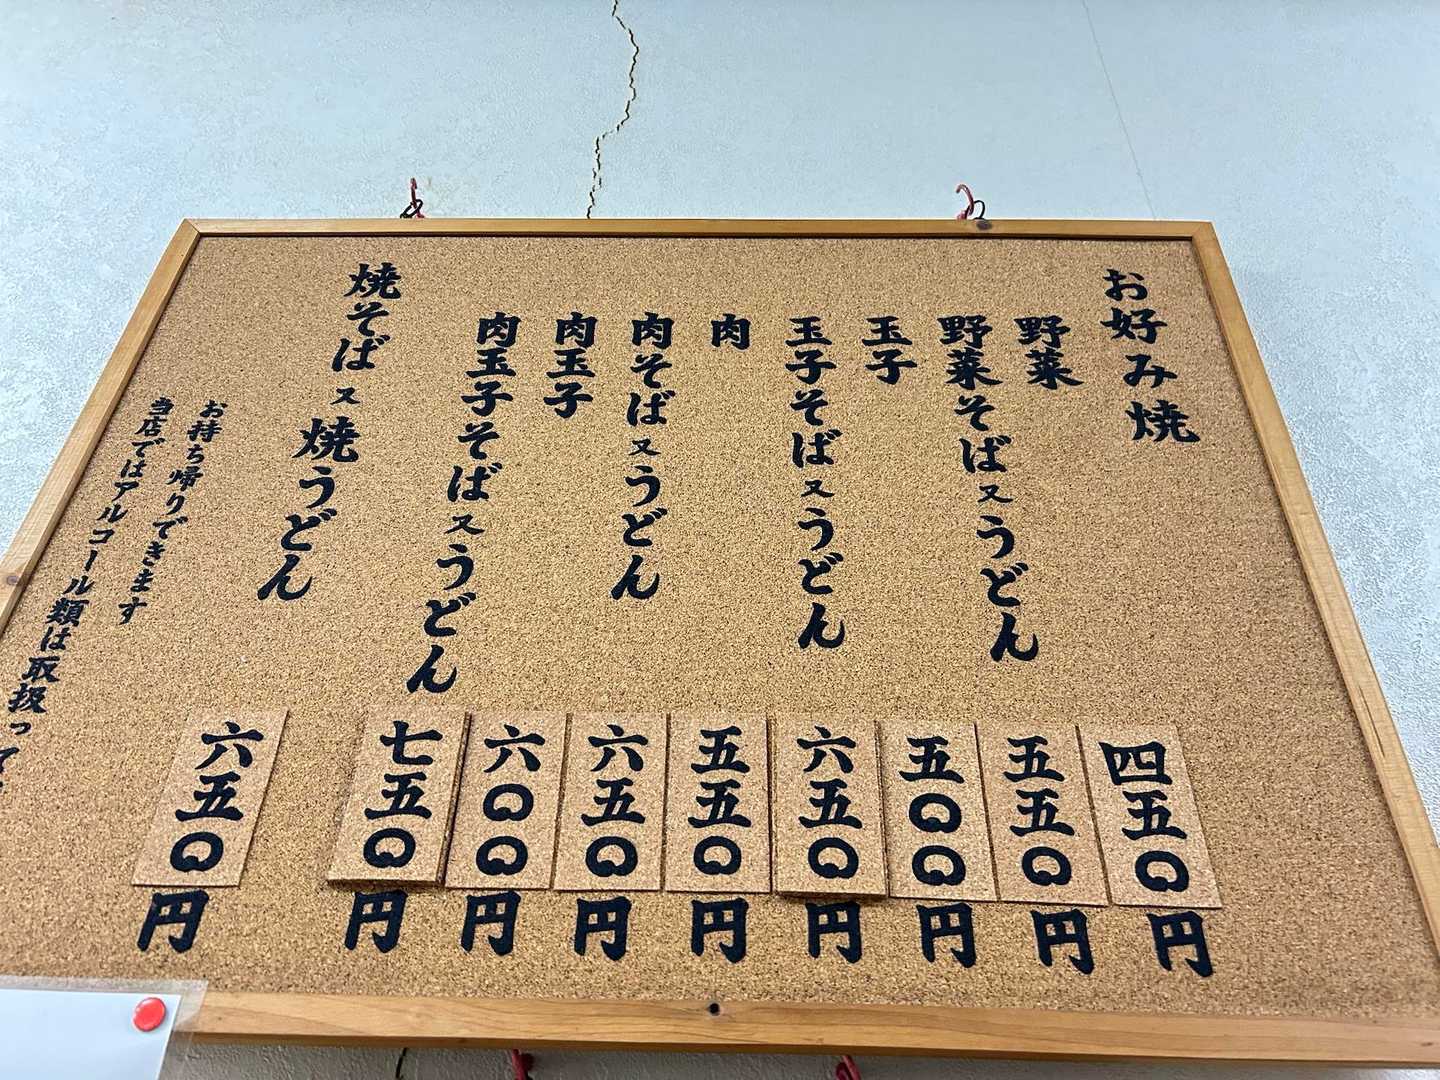 お好み焼
野菜 四五〇円
野菜そば又うどん 五五〇円
玉子 五〇〇円
玉子そば又うどん 六五〇円
肉 五五〇円
肉そば又うどん 六五〇円
肉玉子 六〇〇円
肉玉子そば又うどん 七五〇円
焼そば又焼うどん 六五〇円
お持ち帰りできます
当店ではアルコール類は取扱って